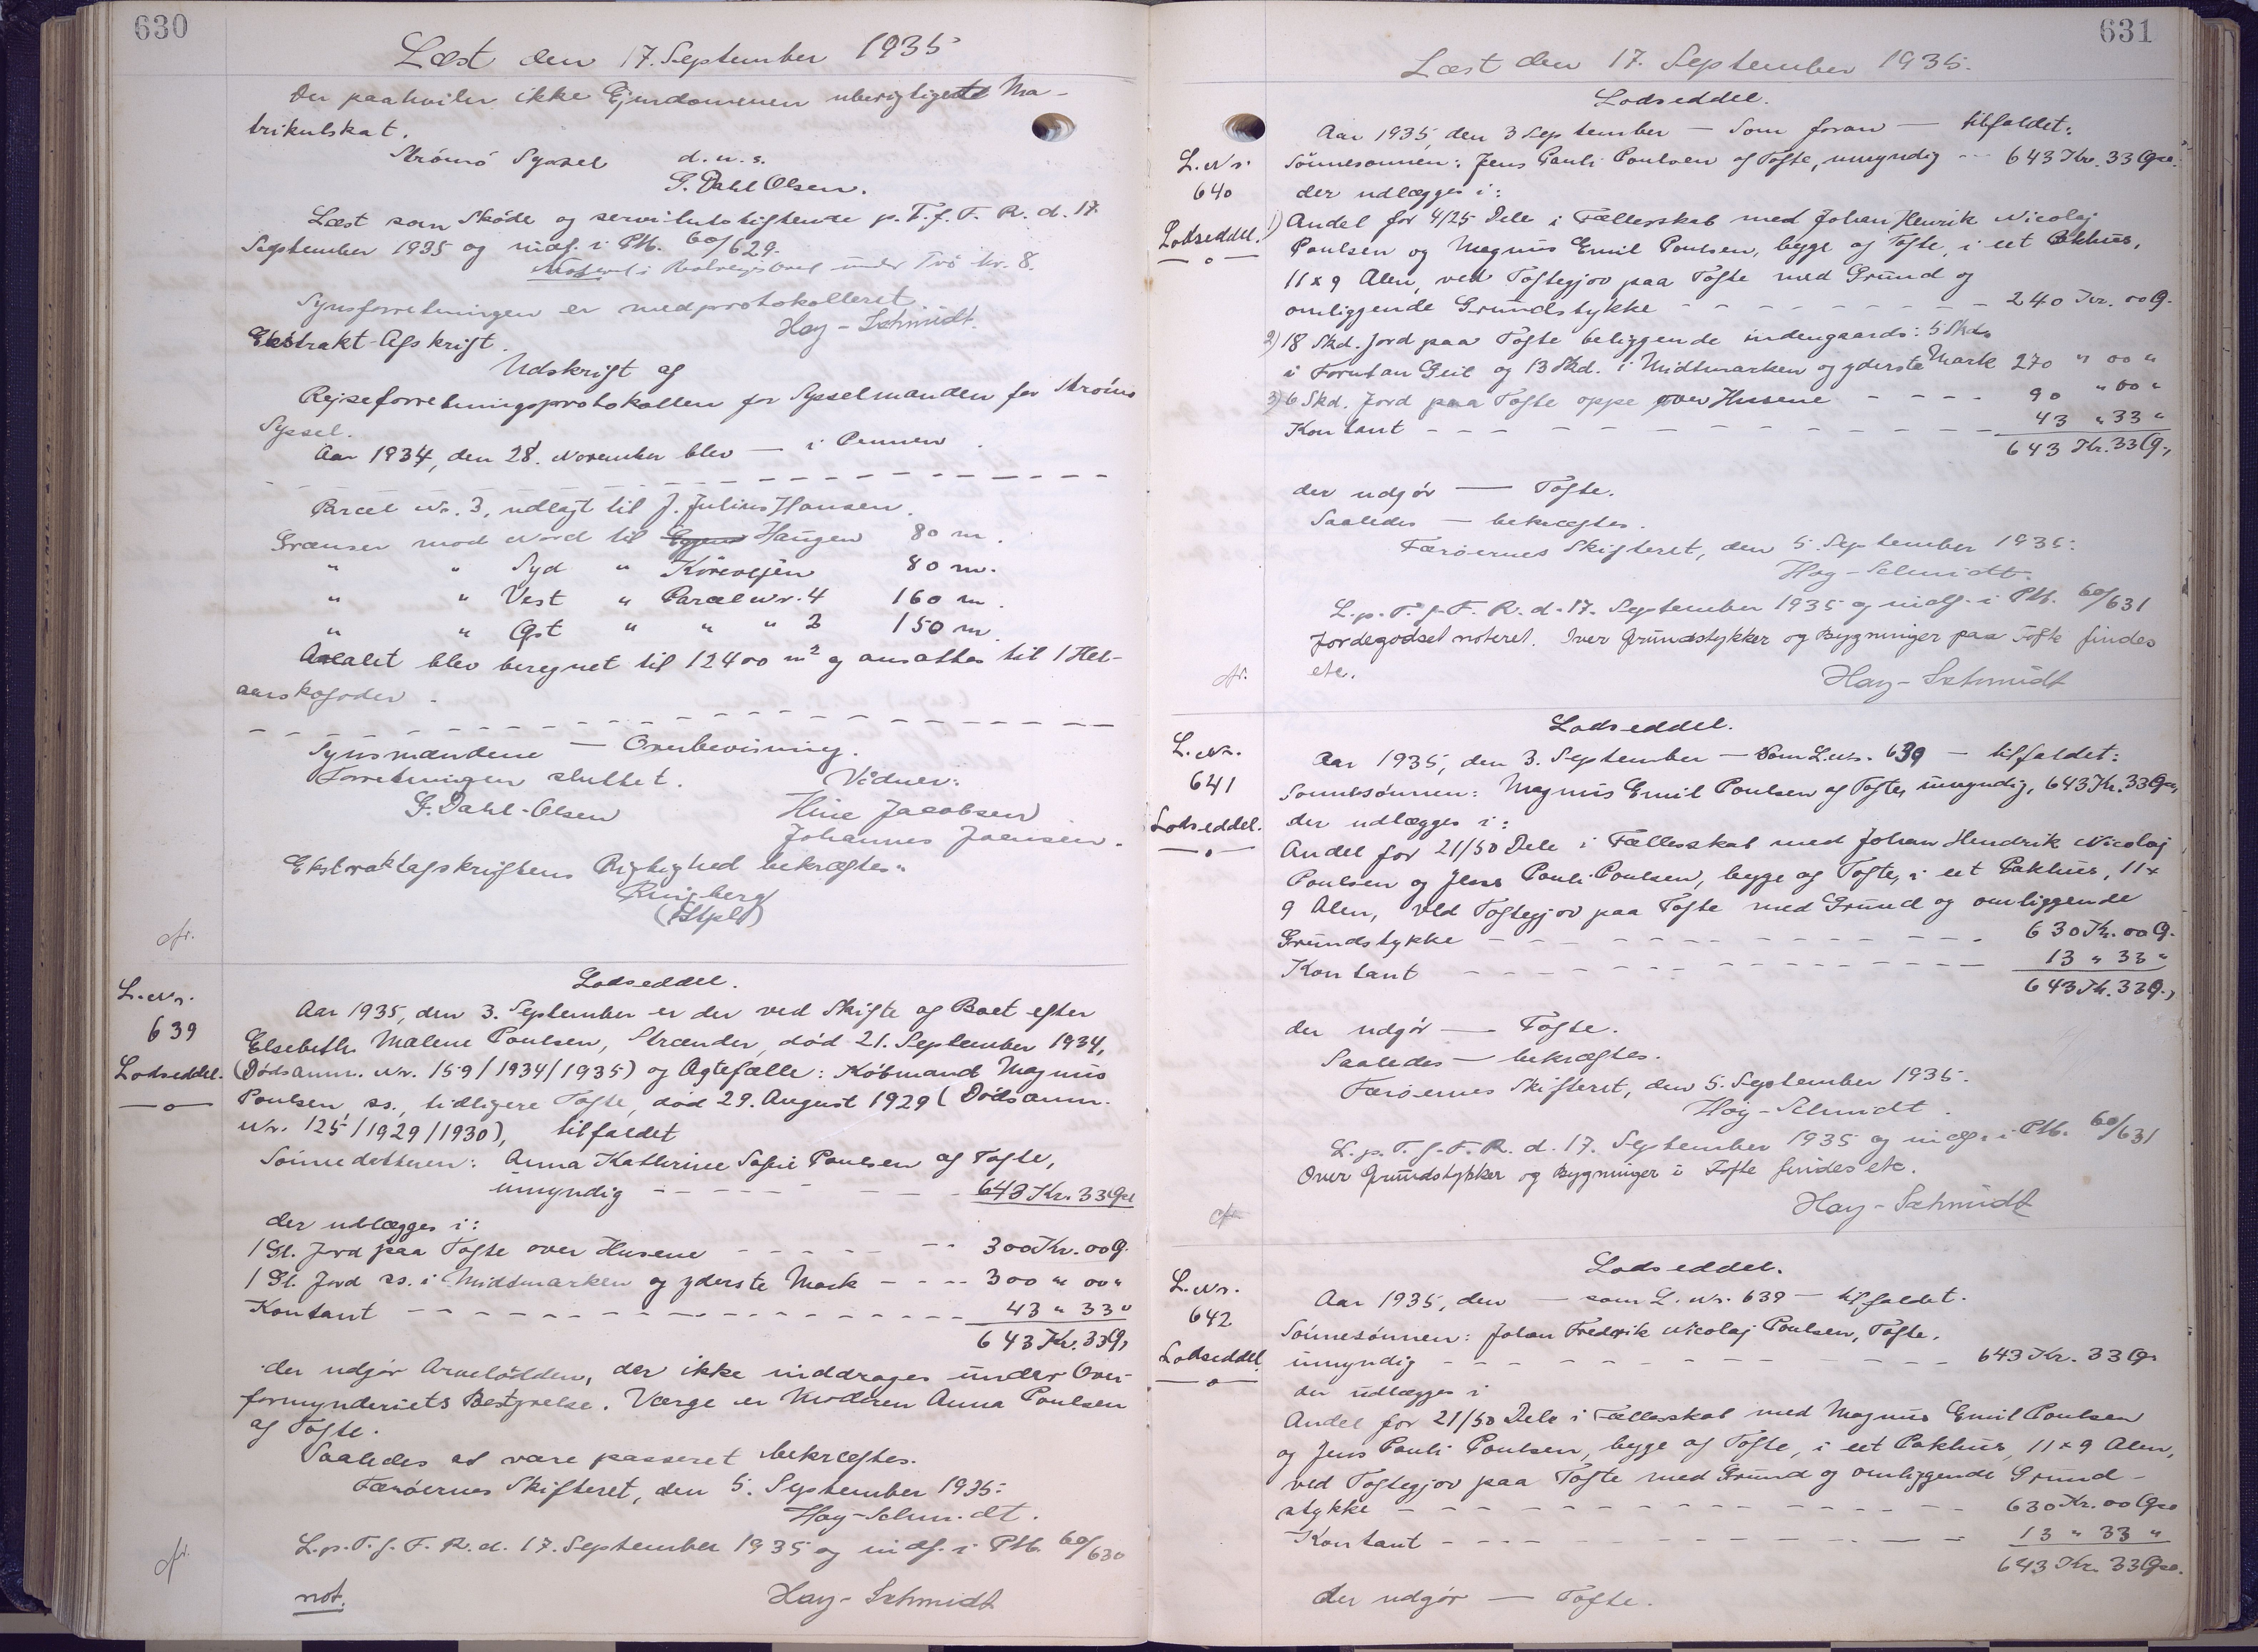 630
Læst den 17. September 1935
Der paahviler ikke Ejendommen uberigtiget Ma-
trikulskat.
Strömö Syssel d. u. s.
G. Dahl Olsen.
Læst som Sköde og servitutstiftende p. T. f. F. R. d. 17.
September 1935 og indf. i Ptk. 60/629.
Noteret i Realregistret under Tvö Nr. 8.
Synsforretningen er medprotokolleret.
Hay-Schmidt.
Ekstrakt-Afskrift.
Udskrift af
Rejseforretningsprotokollen for Sysselmanden for Strömö
Syssel.
Aar 1934, den 28. November blev — i Pennen.
Parcel Nr. 3, udlagt til J. Julius Hansen.
Grænser mod Nord til Haugen 80 m.
" " Syd " Körevejen 80 m.
" " Vest " Parcel Nr. 4 160 m.
" " Öst " " " 2 150 m.
Arealet blev beregnet til 12400 m² og ansattes til 1 Hel-
aarskofoder.
Synsmændene — Overbevisning.
Forretningen sluttet. Vidner:
G. Dahl-Olsen Hine Jacobsen
Johannes Joensen.
Ekstraktafskriftens Rigtighed bekræftes.
Ringberg
(Stpl)
cfr.
Lodseddel.
L. Nr.
639
Lodseddel.
Aar 1935, den 3. September er der ved Skifte af Boet efter
Elsebeth Malene Poulsen, Strænder, död 21. September 1934,
(Dödsanm. Nr. 159/1934/1935) og Ægtefælle: Köbmand Magnus
Poulsen, ss., tidligere Tofte, död 29. August 1929 (Dödsanm.
Nr. 125/1929/1930), tilfaldet
Sönnedatteren: Anna Kathrine Sofie Poulsen af Tofte,
umyndig - - - - 643 Kr. 33 Öre
der udlægges i:
1 Gl. Jord paa Tofte over Husene - - - - 300 Kr. 00 Ö.
1 Gl. Jord ss. i Midtmarken og yderste Mark - - - - 300 " 00 "
Kontant - - - - 43 " 33 "
643 Kr. 33 Ö,
der udgör Arvelodden, der ikke inddrages under Over-
formynderiets Bestyrelse. Værge er Moderen Anna Poulsen
af Tofte.
Saaledes at være passeret bekræftes.
Færöernes Skifteret, den 5. September 1935.
Hay-Schmidt.
L. p. T. f. F. R. d. 17. September 1935 og indf. i Ptk. 60/630
cfr.
not. Hay-Schmidt
631
Læst den 17. September 1935.
Lodseddel.
L. Nr.
640
Lodseddel.
Aar 1935, den 3 September — Som foran — tilfaldet:
Sönnesönnen: Jens Pauli Poulsen af Tofte, umyndig - - 643 Kr. 33 Öre.
der udlægges i:
1) Andel for 4/25 Dele i Fællesskab med Johan Henrik Nicolaj
Poulsen og Magnus Emil Poulsen, begge af Tofte, i eet Pakhus,
11 x 9 Alen, ved Toftegjov paa Tofte med Grund og
omliggende Grundstykke - - - - 240 Kr. 00 Ö.
2) 18 Skd. Jord paa Tofte beliggende indengaards: 5 Skd.
i Forutan Geil og 13 Skd. i Midtmarken og yderste Mark 270 " 00 "
3) 6 Skd. Jord paa Tofte oppe over Husene - - - - 90 " 00 "
Kontant - - - - 43 " 33 "
643 Kr. 33 Ö,
der udgör — Tofte.
Saaledes — bekræftes.
Færöernes Skifteret, den 5. September 1935.
Hay-Schmidt.
L. p. T. f. F. R. d. 17. September 1935 og indf. i Ptk. 60/631
Jordegodset noteret. Over Grundstykker og Bygninger paa Tofte findes
etc.
cfr. Hay-Schmidt
Lodseddel.
L. Nr.
641
Lodseddel.
Aar 1935, den 3. September — Som L. Nr. 639 — tilfaldet:
Sönnesönnen: Magnus Emil Poulsen af Tofte, umyndig, 643 Kr. 33 Öre,
der udlægges i:
Andel for 21/50 Dele i Fællesskab med Johan Hendrik Nicolaj
Poulsen og Jens Pauli Poulsen, begge af Tofte, i eet Pakhus, 11 x
9 Alen, ved Toftegjov paa Tofte med Grund og omliggende
Grundstykke - - - - 630 Kr. 00 Ö.
Kontant - - - - 13 " 33 "
643 Kr. 33 Ö,
der udgör — Tofte.
Saaledes — bekræftes.
Færöernes Skifteret, den 5. September 1935.
Hay-Schmidt.
L. p. T. f. F. R. d. 17. September 1935 og indf. i Ptk. 60/631
Over Grundstykker og Bygninger i Tofte findes etc.
cfr. Hay-Schmidt
Lodseddel.
L. Nr.
642
Lodseddel
Aar 1935, den — som L. Nr. 639 — tilfaldet.
Sönnesönnen: Johan Fredrik Nicolaj Poulsen, Tofte,
umyndig - - - - 643 Kr. 33 Ö.
der udlægges i
Andel for 21/50 Dele i Fællesskab med Magnus Emil Poulsen
og Jens Pauli Poulsen, begge af Tofte, i eet Pakhus, 11 x 9 Alen,
ved Toftegjov paa Tofte med Grund og omliggende Grund-
stykke - - - - 630 Kr. 00 Öre
Kontant - - - - 13 " 33 "
643 Kr. 33 Öre.
der udgör — Tofte.